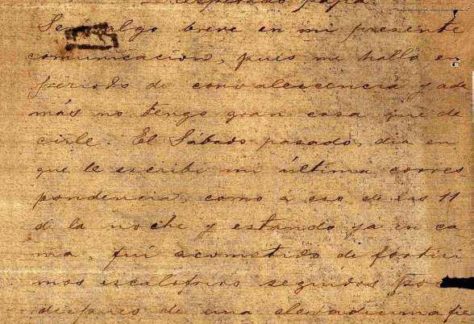 papá
Seré algo breve en mi presente
comunicación, pues me hallo en
período de convalescencia y ade
más no tengo gran cosa que de
cirle. El Sábado pasado, día en
que le escribí mi última corres
pondencia, como á eso de las 11
de la noche y estando ya en ca
ma, fuí acometido de fortísi
mos escalofríos seguidos
después de una